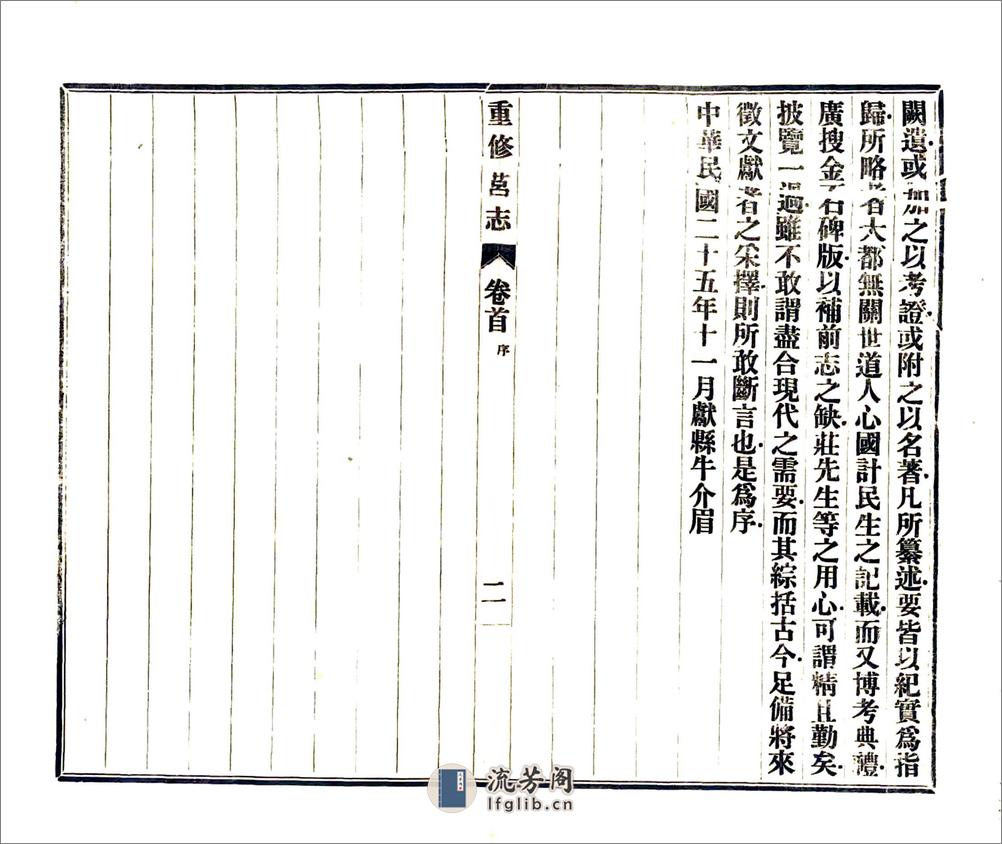 闕遺或加之以考證或附之以名著凡所纂述要皆以紀實爲指
歸所略者大都無關世道人心國計民生之記載而又博考典禮
廣搜金石碑版以補前志之缺莊先生等之用心可謂精且勤矣
披覽一過雖不敢謂盡合現代之需要而其綜括古今足備將來
徵文獻者之采擇則所敢斷言也是爲序
中華民國二十五年十一月獻縣牛介眉
重修莒志 卷首 序 二
流芳阁
lfglib.cn